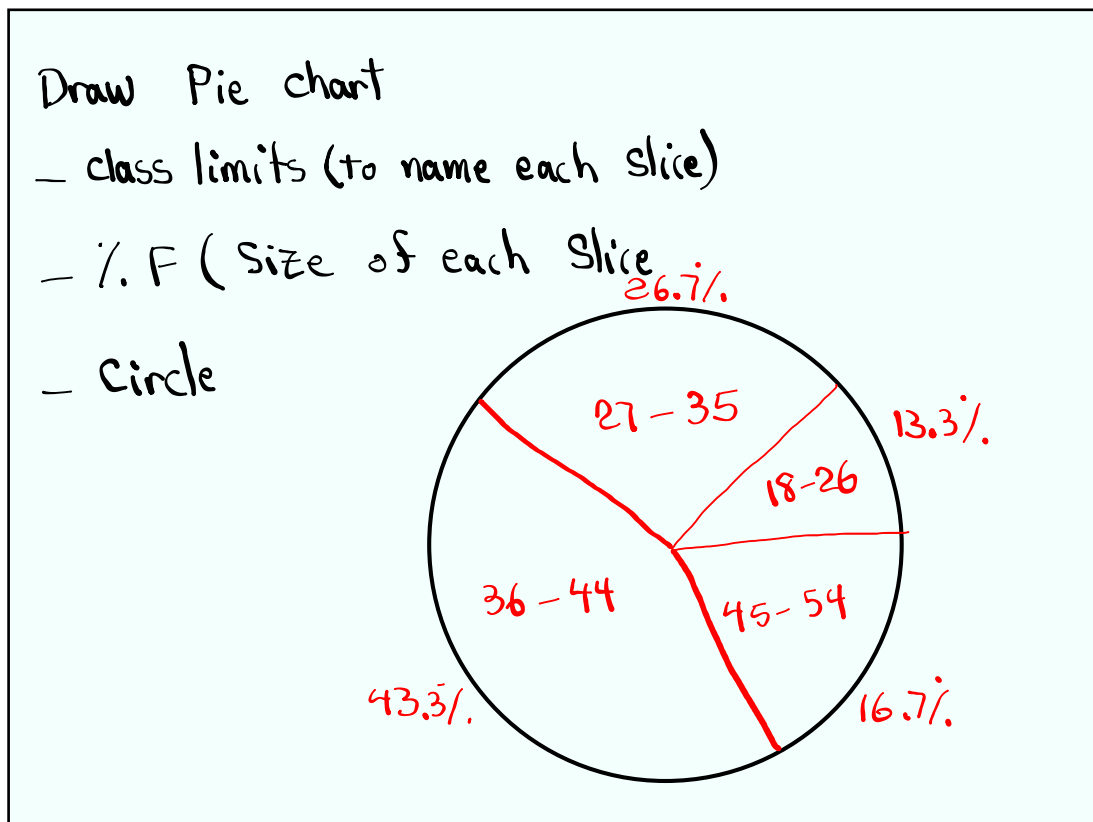 Draw Pie chart
- class limits (to name each Slice)
- % F ( Size of each Slice
26.7%
- Circle
27 - 35
13.3%
18-26
36 - 44
45 - 54
43.3%
16.7%